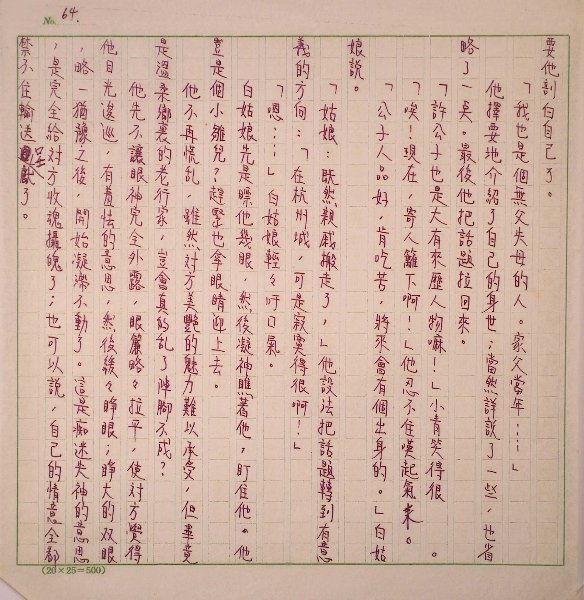 No. 64.
要他剖白自己了。
「我也是個無父失母的人。家父當年……」
他擇要地介紹了自己的身世;當然詳說了一些,也省
略了一莫。最後他把話題拉回來。
「許公子也是大有來歷人物嘛!」小青笑得很 。
「唉!現在,寄人籬下啊!」他忍不住嘆起氣來。
「公子人品好,肯吃苦,將來會有個出身的。」白姑
娘說。
「姑娘:既然親戚搬走了,」他設法把話題轉到有意
義的方向:「在杭州城,可是寂寞得很啊!」
「嗯……」白姑娘輕々吁口氣。
白姑娘先是瞟他幾眼,然後凝神瞧著他,盯住他。他
豈是個小雛兒?趕緊也拿眼睛迎上去。
他不再慌亂,雖然對方美艷的魅力難以承受,但畢竟
是溫柔鄉裏的老行家,豈會真的亂了陣腳不成?
他先不讓眼神完全外露,眼簾略々拉平,使對方覺得
他目光逡巡,有羞怯的意思,然後緩々睜眼;睜大的双眼
,略一猶豫之後,開始凝滯不動了。這是痴迷失神的意思
,是完全給對方收魂攝魄了;也可以說,自己的情意全都
禁不住輸送呈献了。
(20×25=500)